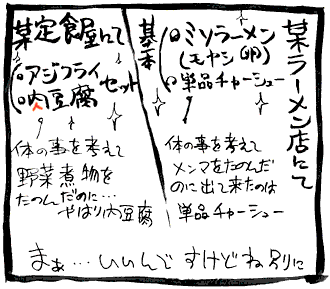 某ラーメン店にて
基本
・ミソラーメン
(モヤシ 卵)
・単品チャーシュー
体の事を考えて
メンマをたのんだ
のに出て来たのは
単品チャーシュー
某定食屋にて
・アジフライ
・肉豆腐
セット
体の事を考えて
野菜煮物を
たのんだのに…
やはり肉豆腐
まぁ…いいんですけどね別に